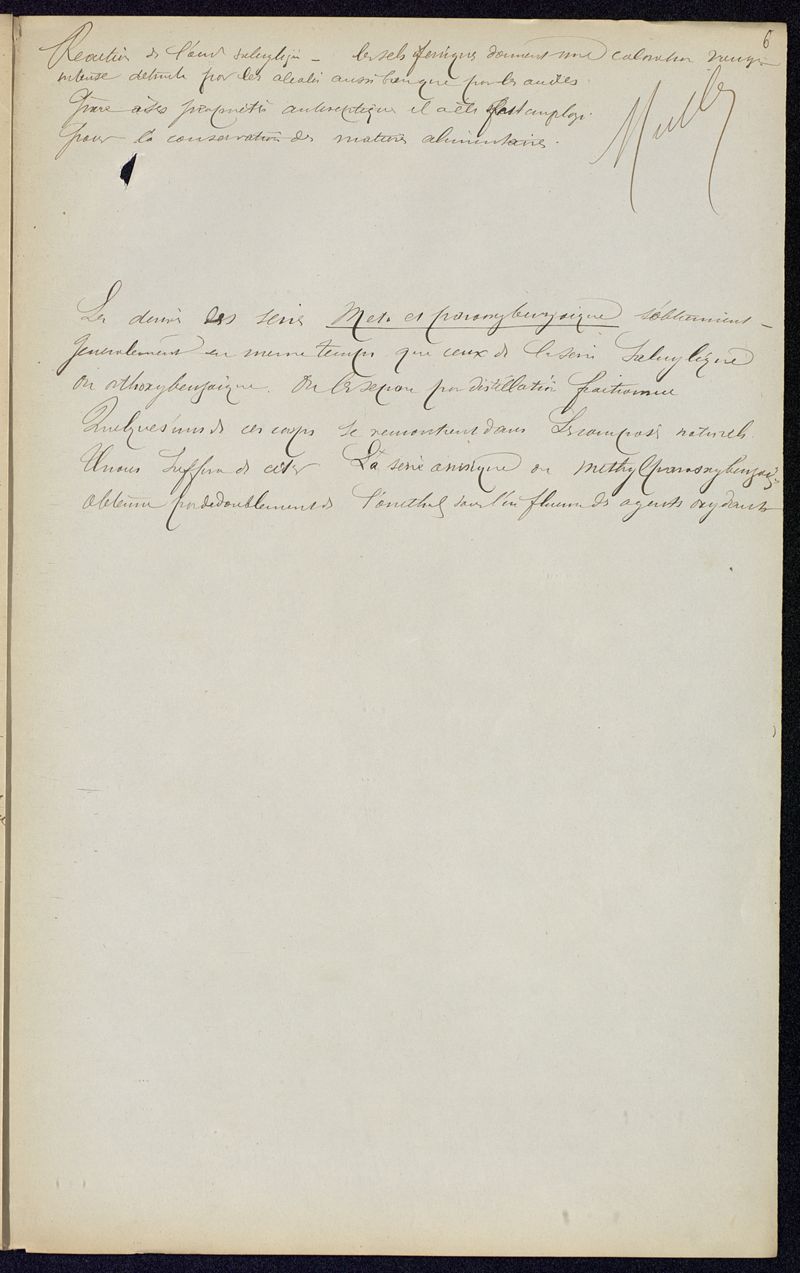 6
Réaction de l'acide salicylique – les sels ferriques donnent une coloration rouge
intense détruite par les alcalis aussi bien que par les acides
Grace à ses propriétés antiseptiques il a été fort employé
pour la conservation des matières alimentaires.
Les dérivés des séries Meta et paraoxybenzoique s'obtiennent
généralement en meme temps que ceux de la serie Salicylique
ou orthoxybenzoique. On les separe par distillation fractionnée
Quelques uns de ces corps se rencontrent dans les composés naturels
Il nous suffira de citer La serie anisique ou methylparaoxybenzoiq
obtenue par dedoublement de l'anethol sous l'influence des agents oxydants